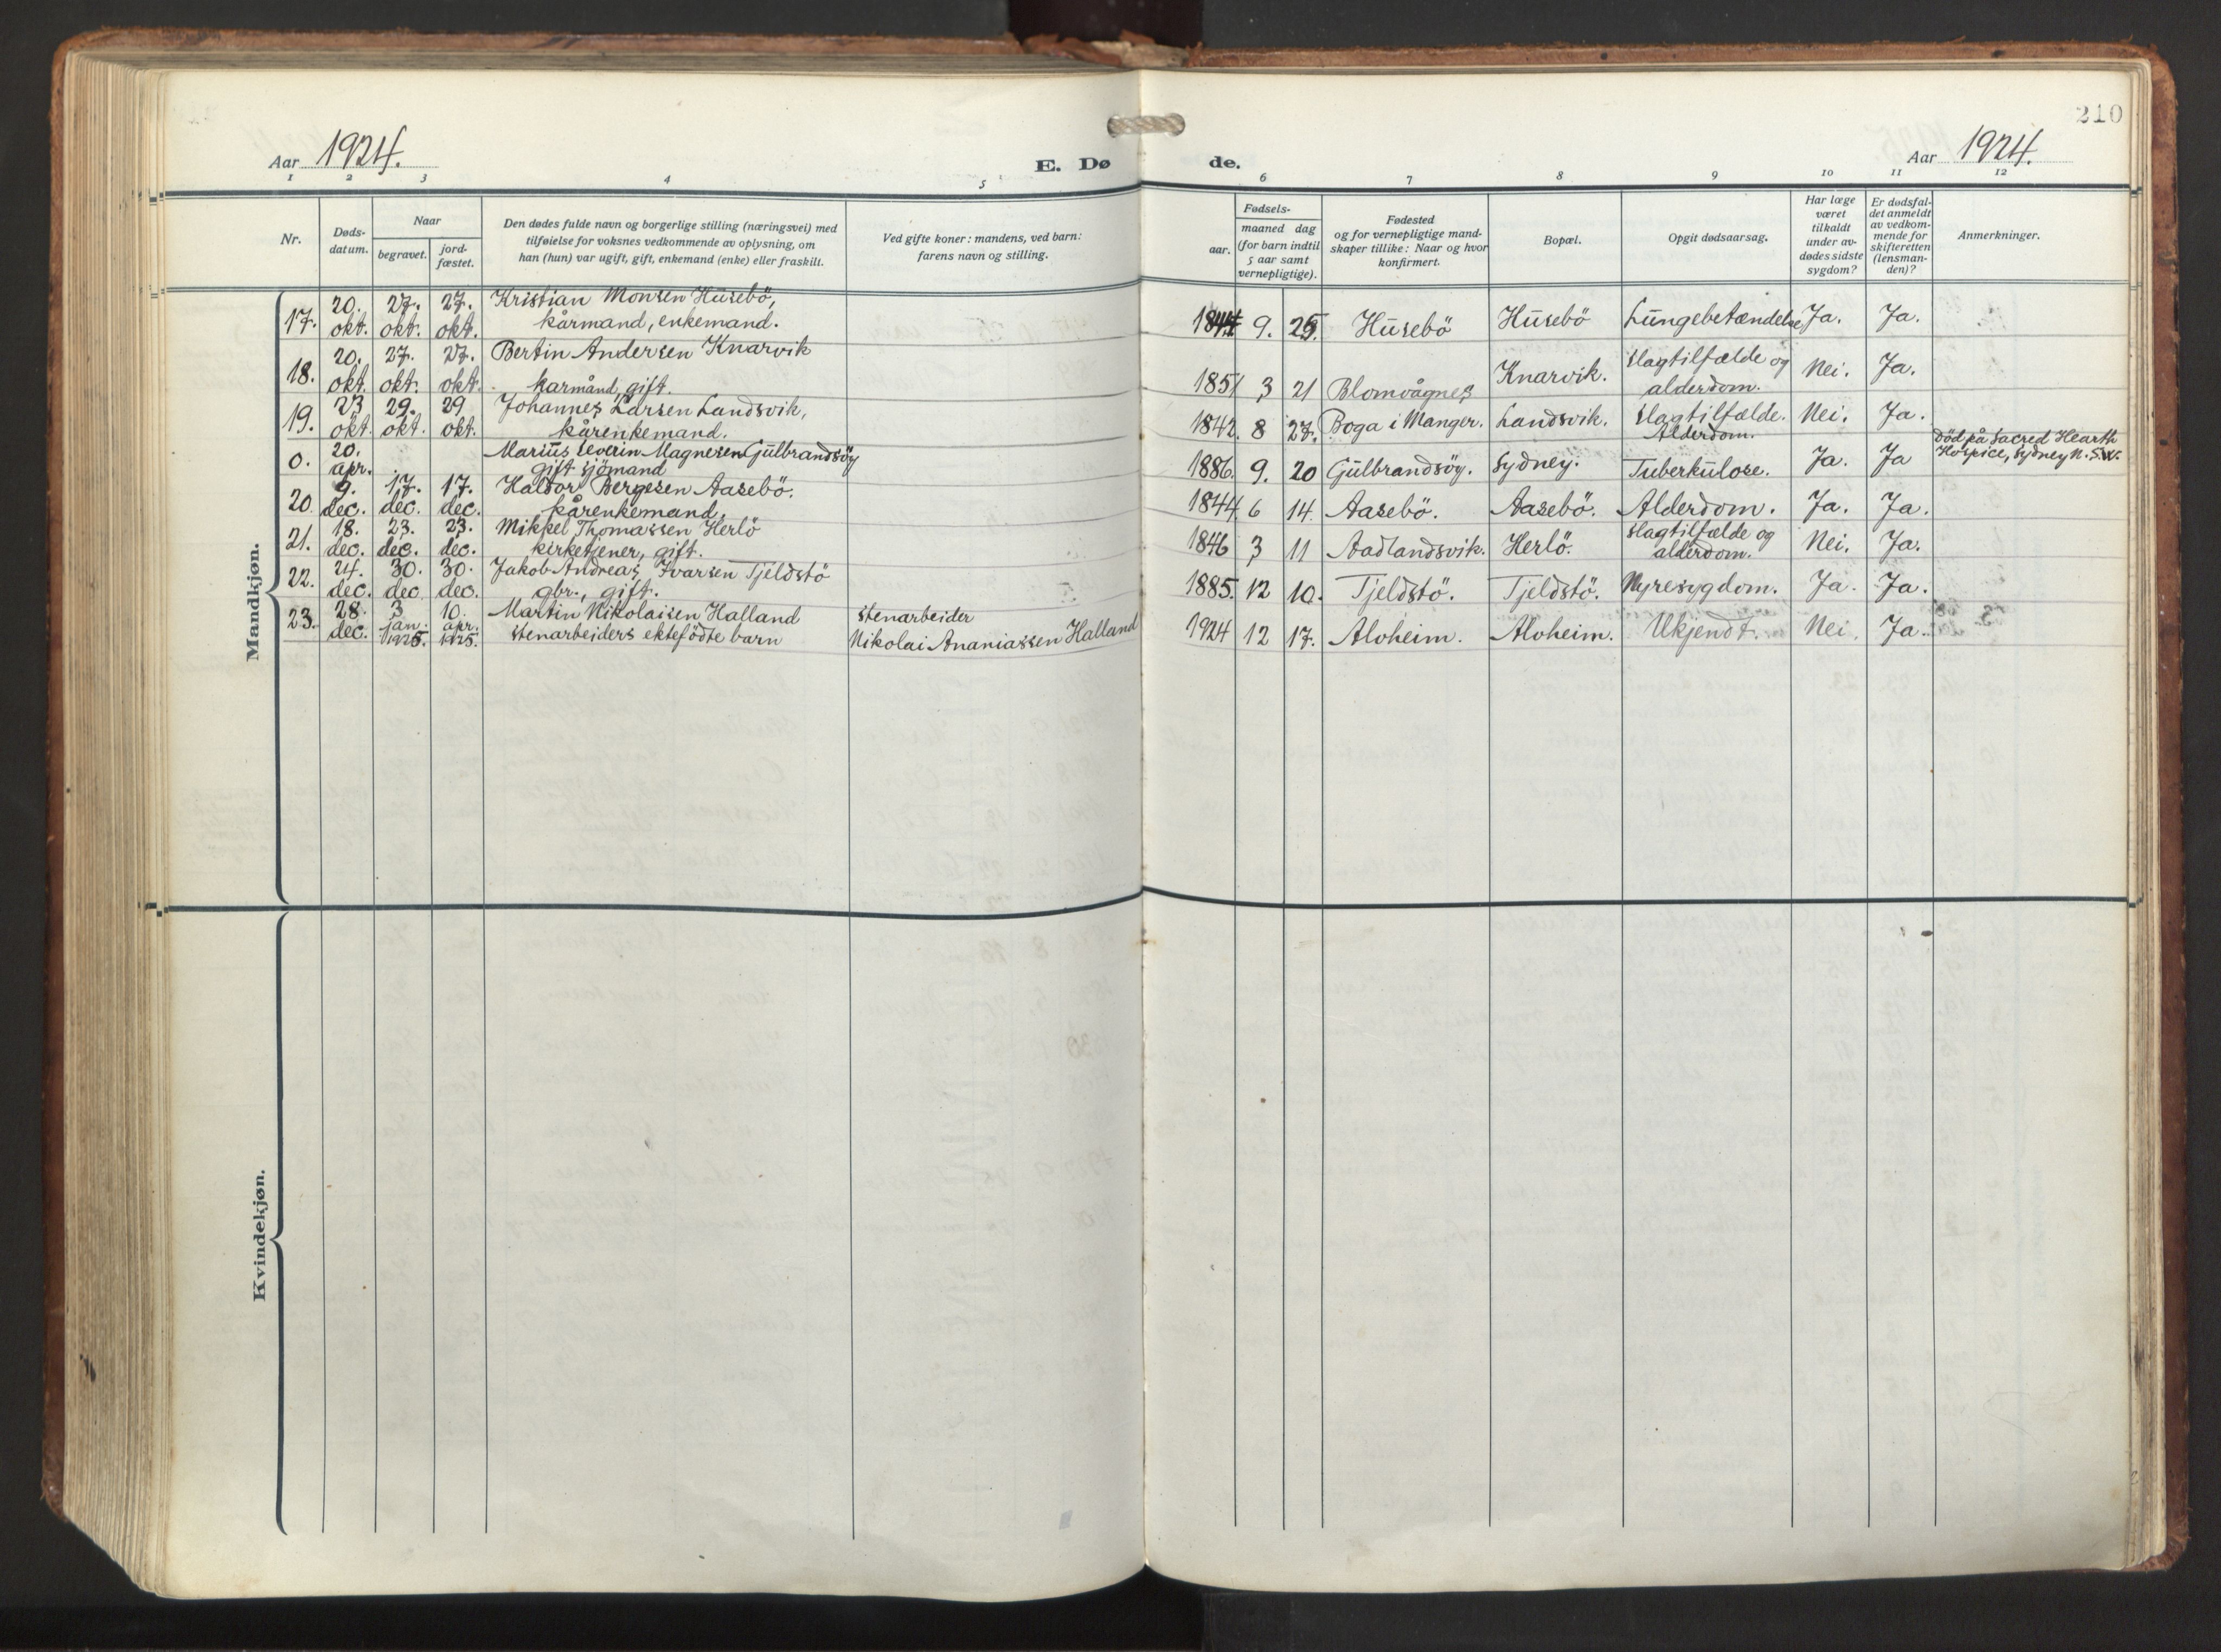 210
Aar 1924.
E. Dø
de.
Aar 1924.
1 2 3 4 5 6 7 8 9 10 11 12
Nr.
Døds-
datum.
Naar
begravet.
jord-
fæstet.
Den dødes fulde navn og borgerlige stilling (næringsvei) med
tilføielse for voksnes vedkommende av oplysning, om
han (hun) var ugift, gift, enkemand (enke) eller fraskilt.
Ved gifte koner: mandens, ved barn:
farens navn og stilling.
Fødsels-
aar.
maaned dag
(for barn indtil
5 aar samt
vernepligtige).
Fødested
og for vernepligtige mand-
skaper tillike: Naar og hvor
konfirmert.
Bopæl.
Opgit dødsaarsag.
Har læge
været
tilkaldt
under av-
dødes sidste
sygdom?
Er dødsfal-
det anmeldt
av vedkom-
mende for
skifteretten
(lensman-
den)?
Anmerkninger.
Mandkjøn.
17. 20. okt. 27. okt. 27. okt. Kristian Monsen Husebö,
kårmand, enkemand.
9. 25. Husebö Husebö Lungebetændelse Ja. Ja.
18. 20. okt. 27. okt. 27. okt. Bertin Andersen Knarvik
karmånd, gift.
1851 3 21 Blomvågnes Knarvik. Slagtilfælde og
alderdom. Nei. Ja.
19. 23 okt. 29. okt. 29 okt. Johannes Larsen Landsvik,
kårenkemand.
1842. 8 27. Boga i Manger. Landsvik. Slagtilfælde.
Alderdom. Nei. Ja.
0. 20. apr. Marius Severin Magnesen Gulbrandsöy
gift sjömand
1886. 9. 20 Gulbrandsöy. Sydney. Tuberkulose. Ja. Ja Död på Sacred Hearth
Hospice, Sydney N.S.W.
20. 9. dec. 17. dec. 17. dec. Haldor Bergesen Aasebö.
kårenkemand.
1844. 6 14. Aasebö. Aasebö. Alderdom. Ja. Ja.
21. 18. dec. 23. dec. 23. dec. Mikkel Thomassen Herlö
kirketjener, gift.
1846 3 11 Aadlandsvik. Herlö. Slagtilfælde og
alderdom. Nei. Ja.
22. 24. dec. 30. dec 30. dec. Jakob Andreas Ivarsen Tjeldstö
gbr., gift.
1885. 12 10. Tjeldstö. Tjeldstö. Nyresygdom. Ja. Ja.
23. 28. dec. 3 jan. 1925. 10. apr. 1925. Martin Nikolaisen Halland
stenarbeiders ektefödte barn
stenarbeider
Nikolai Ananiassen Halland
1924 12 17. Aloheim. Aloheim. Ukjendt. Nei. Ja.
Kvindekjøn.